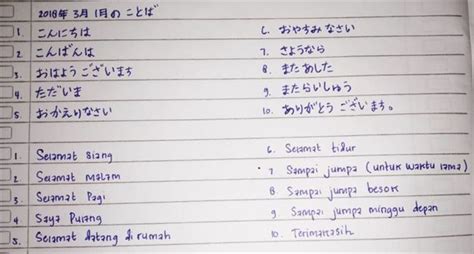 2018年 3月 1月の ことば
1. こんにちは
2. こんばんは
3. おはよう ございます
4. ただいま
5. おかえりなさい
6. おやすみ なさい
7. さようなら
8. また あした
9. また らいしゅう
10. ありがとう ございます。
1. Selamat Siang
2. Selamat Malam
3. Selamat Pagi
4 Saya Pulang
5. Selamat datang di rumah
6. Selamat tidur
7 Sampai jumpa (untuk waktu lama)
8 Sampai jumpa besok
9 Sampai jumpa minggu depan
10. Terimakasih